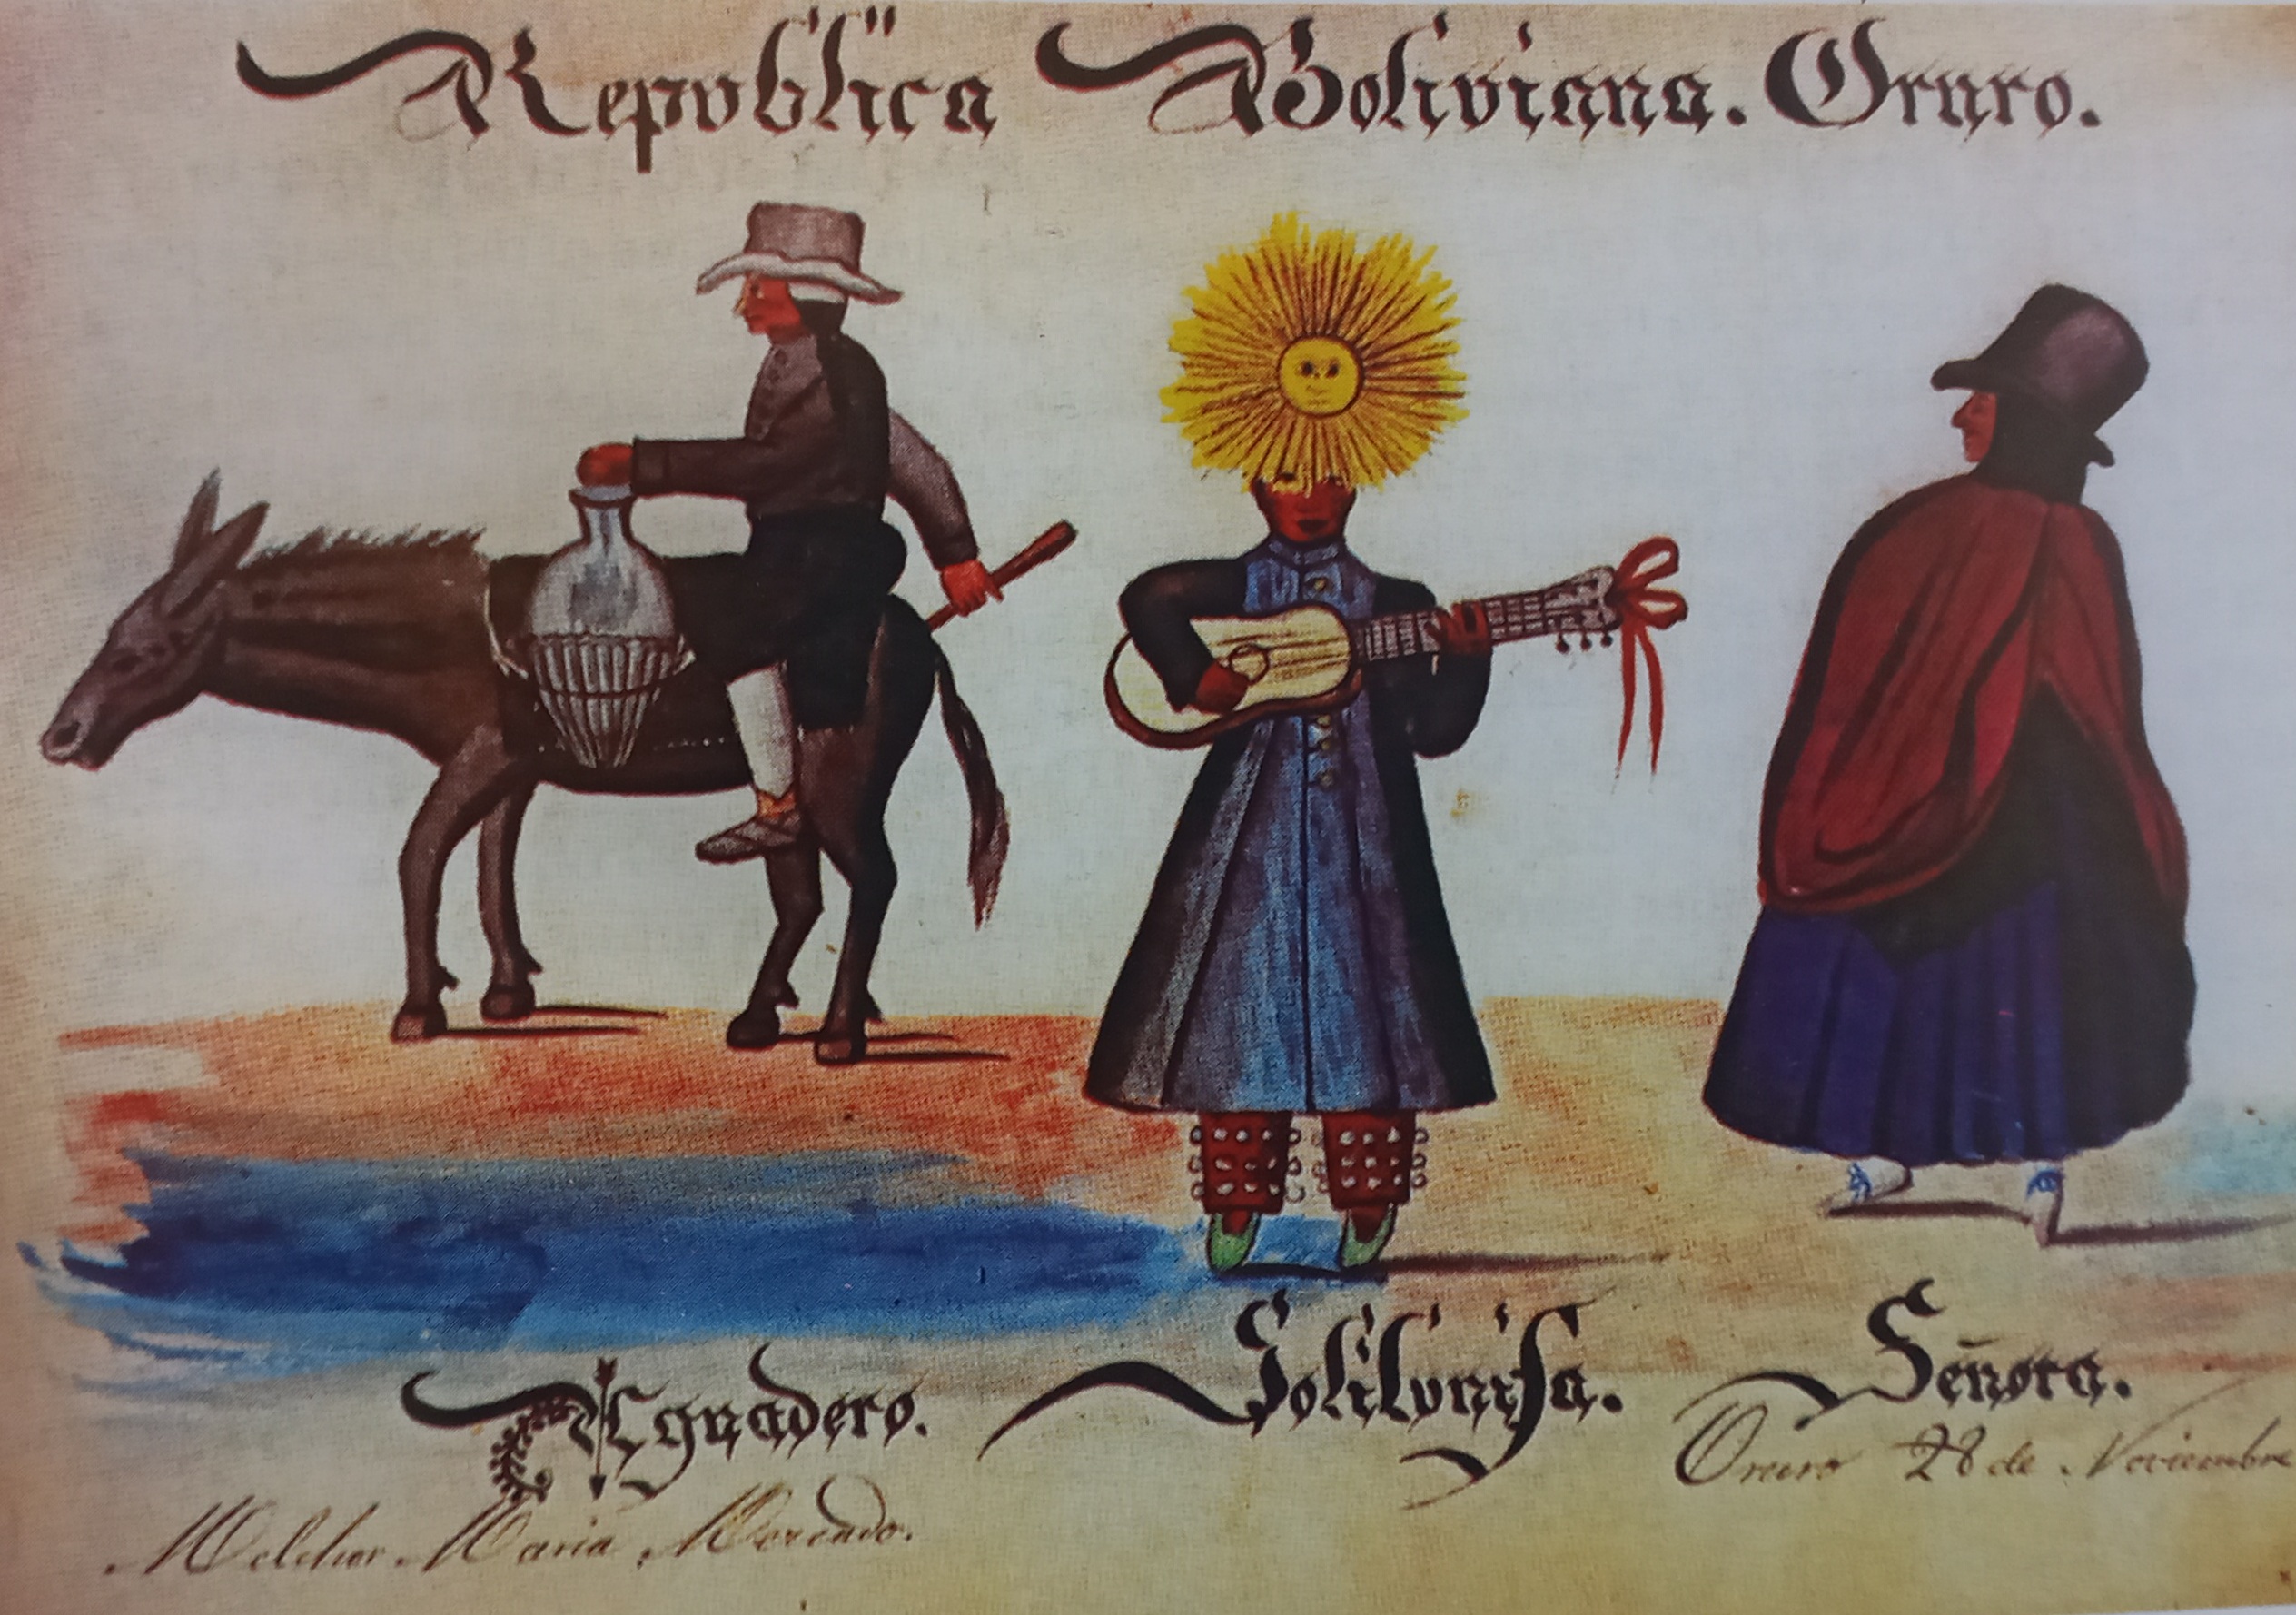 Republica Boliviana. Oruro.
Aguadero. Solilunisa. Señora.
Oruro 28 de Noviembre
Melchor Maria Mercado.